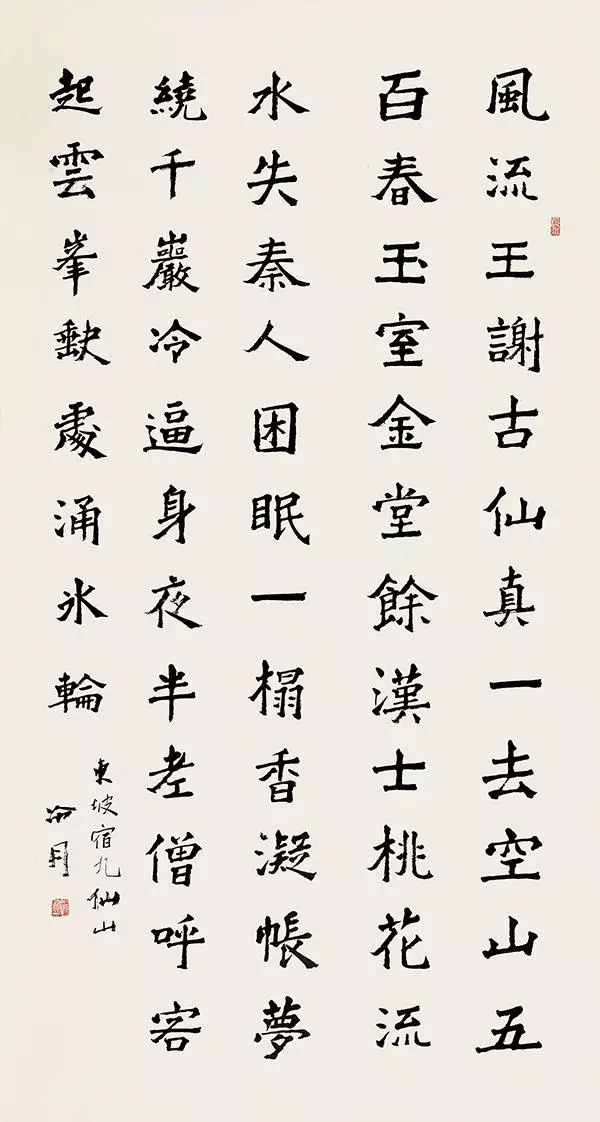 風流王謝古仙真一去空山五
百春玉室金堂餘漢士桃花流
水失秦人困眠一榻香凝帳夢
繞千巖冷逼身夜半老僧呼客
起雲峯缺處涌冰輪
東坡宿九仙山